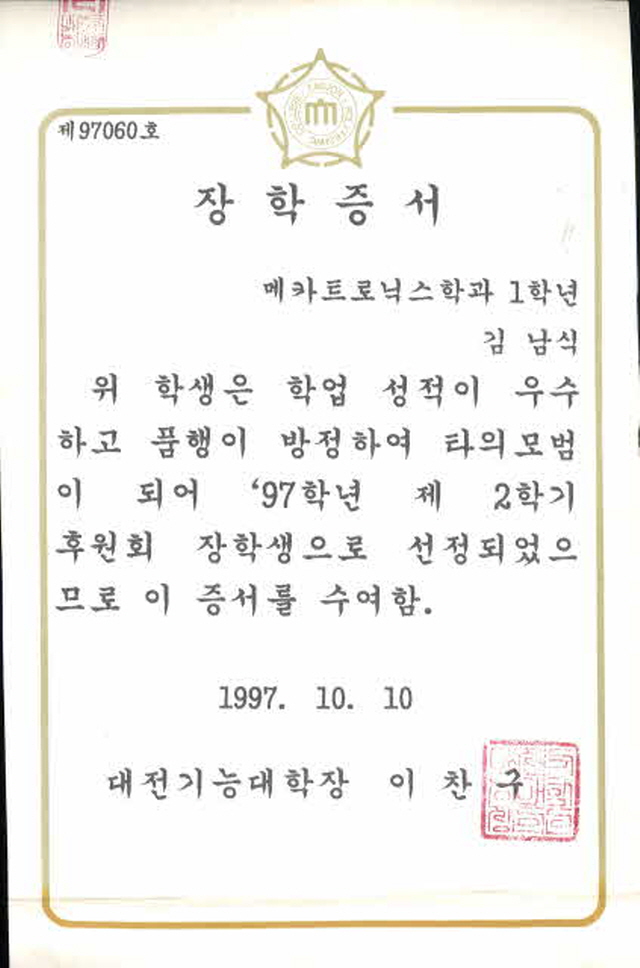 제97060호
장학증서
메카트로닉스학과 1학년
김 남식
위 학생은 학업 성적이 우수
하고 품행이 방정하여 타의모범
이 되어 ‘97학년 제 2학기
후원회 장학생으로 선정되었으
므로 이 증서를 수여함.
1997. 10. 10
대전기능대학장 이 찬 구